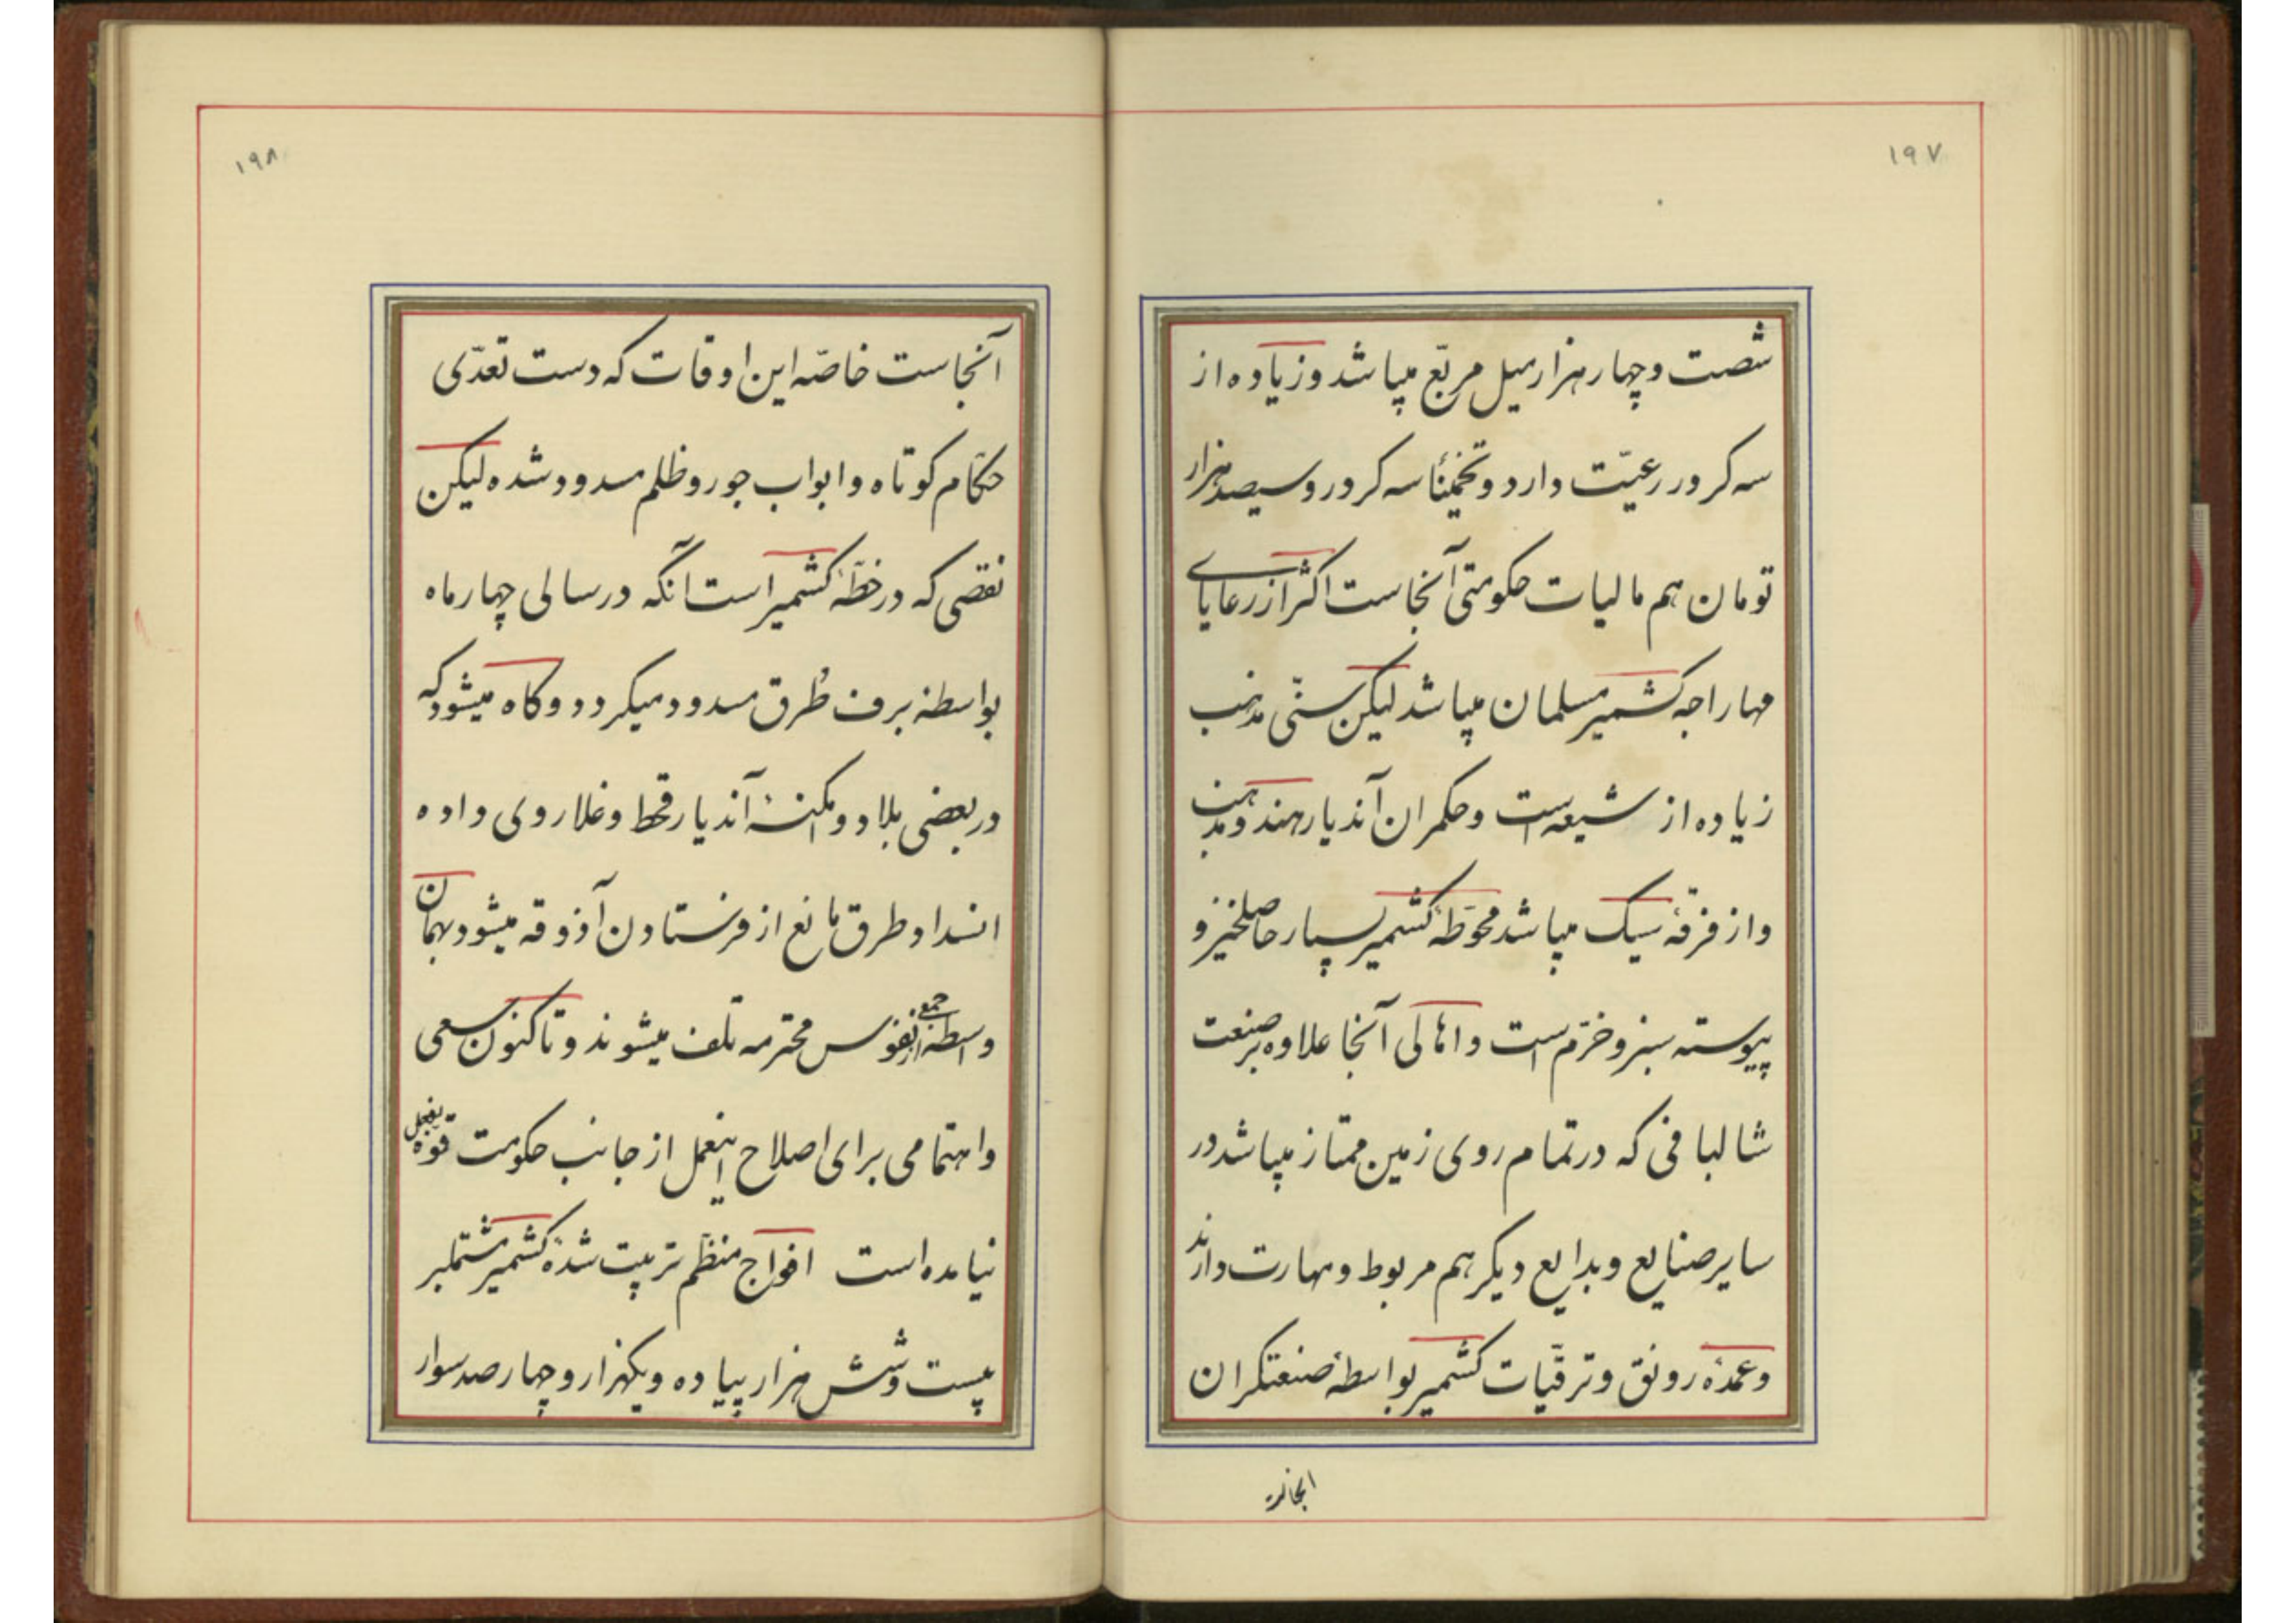 ۱۹۷
شصت و چهار هزار میل مربّع میباشد و زیاده از
سه کرور رعیّت دارد و تخمیناً سه کرور و سیصد هزار
تومان هم مالیات حکومتی آنجاست اکثر از رعایای
مهاراجه کشمیر مسلمان میباشد لیکن سنّی مذهب
زیاده از شیعه است و حکمران آندیار هند و مذهب
و از فرقهٔ سیک میباشد محوّطهٔ کشمیر بسیار حاصلخیز و
پیوسته سبز و خرّم است و اهالی آنجا علاوه بر صنعت
شالبافی که در تمام روی زمین ممتاز میباشد در
سایر صنایع و بدایع دیکر هم مربوط و مهارت دارند
و عمدهٔ رونق و ترقّیات کشمیر بواسطهٔ صنعتکران
۱۹۸
آنجاست خاصّه این اوقات که دست تعدّی
حکّام کوتاه و ابواب جور و ظلم مسدود شده لیکن
نقصی که در خطّهٔ کشمیر است آنکه در سالی چهار ماه
بواسطهٔ برف طُرق مسدود میکردد و کاه میشود که
در بعضی بلاد و امکنهٔ آندیار قحط و غلا روی داده
انسداد طرق مانع از فرستادن آذوقه میشود بهمان
واسطه جمعی از نفوس محترمه تلف میشوند و تاکنون سعی
و اهتمامی برای اصلاح اینعمل از جانب حکومت قوّه بفعل
نیامده است افواج منظّم تربیت شدهٔ کشمیر مشتملبر
بیست و شش هزار پیاده و یکهزار و چهار صد سوار